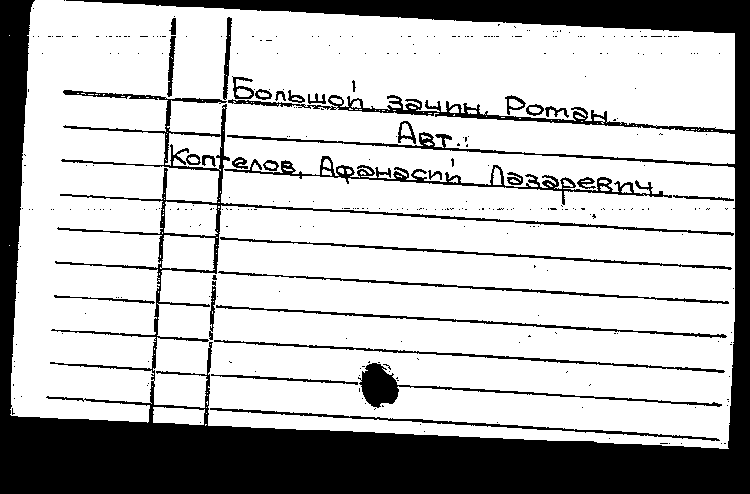 Большой зачин. Роман.
Авт.:
Коптелов, Афанасий Лазаревич.